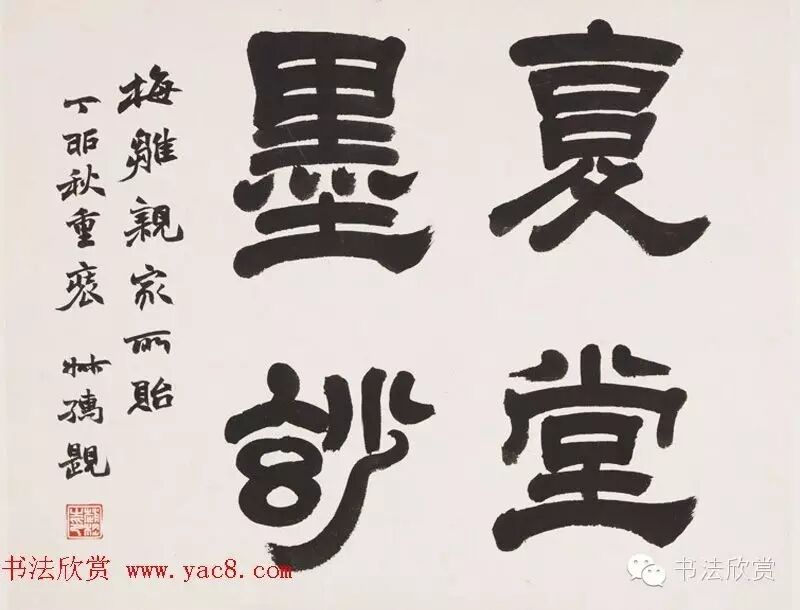 复堂
墨玅
梅雛親家所貽
丁卯秋重裝 題
书法欣赏 www.yac8.com
书法欣赏